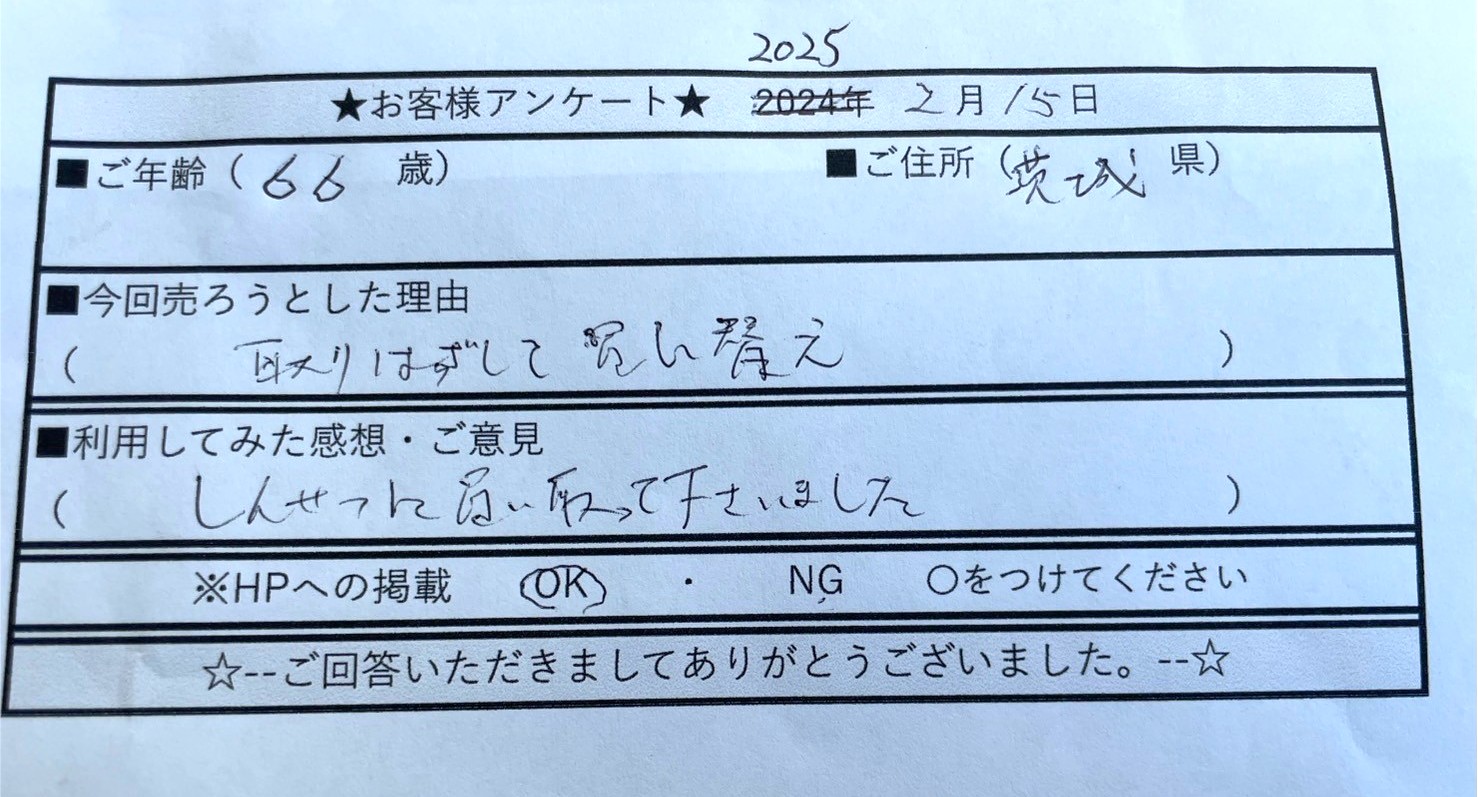 2025
★お客様アンケート★ 2024年 2月15日
■ご年齢（66 歳） ■ご住所（茨城 県）
■今回売ろうとした理由
（ 取りはずして買い替え ）
■利用してみた感想・ご意見
（ しんせつに買い取って下さいました ）
※HPへの掲載 OK ・ NG ○をつけてください
☆--ご回答いただきましてありがとうございました。--☆